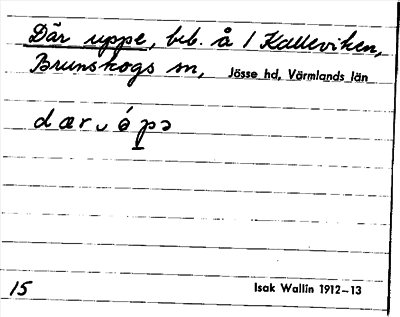 Där uppe, beb. å 1 Kalleviken,
Brunskogs sn, Jösse hd, Värmlands län
dærᴗópə
15 Isak Wallin 1912–13